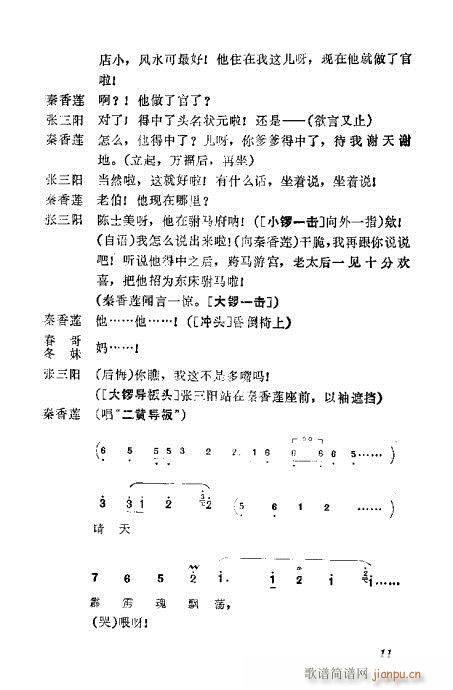 店小，风水可最好！他住在我这儿呀，现在他就做了官
啦！
秦香莲 啊？！他做了官了？
张三阳 对了！得中了头名状元啦！还是——（欲言又止）
秦香莲 怎么，他得中了？儿呀，你爹爹得中了，待我谢天谢
地。（立起，万福后，再坐）
张三阳 当然啦，这就好啦！有什么话，坐着说，坐着说！
秦香莲 老伯！他现在哪里？
张三阳 陈士美呀，他在驸马府呐！（［小锣一击］向外一指）欸！
（自语）我怎么说出来啦！（向秦香莲）干脆，我再跟你说说
吧！听说他得中之后，跨马游宫，老太后一见十分欢
喜，把他招为东床驸马啦！
（秦香莲闻言一惊。［大锣一击］）
秦香莲 他……他……！（［冲头］昏倒椅上）
春哥
冬妹 妈……！
张三阳 （后悔）你瞧，我这不是多嘴吗！
（［大锣导板头］张三阳站在秦香莲座前，以袖遮挡）
秦香莲 （唱“二黄导板”）
（6 5 5 5 3 2 2· 1 6 6 6 5……）
3 3 1 2 2 （5 6 1 2……）
晴天
7 6 5 2 1· 1 2 1……
霹雳魂飘荡，
（哭）喂呀！
11
歌谱简谱网
jianpu.cn